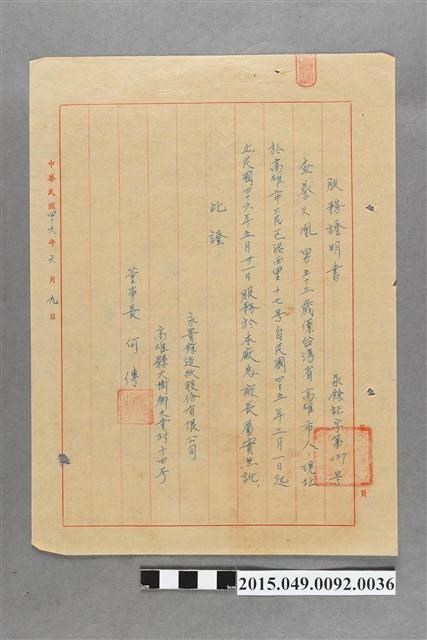 服務證明書
永餘記字第 號
查蔡文凰男五十三歲係台湾省高雄市人，現址
於高雄市三民區港西里十七号自民國四十五年三月一日起
止民國四十六年五月廿一日服務於本廠為廠長屬實無訛，
此證
永豐餘造紙股份有限公司
高雄縣大樹鄉久堂村十四号
董事長 何傳
中華民國四十六年六月九日
頁
2015.049.0092.0036